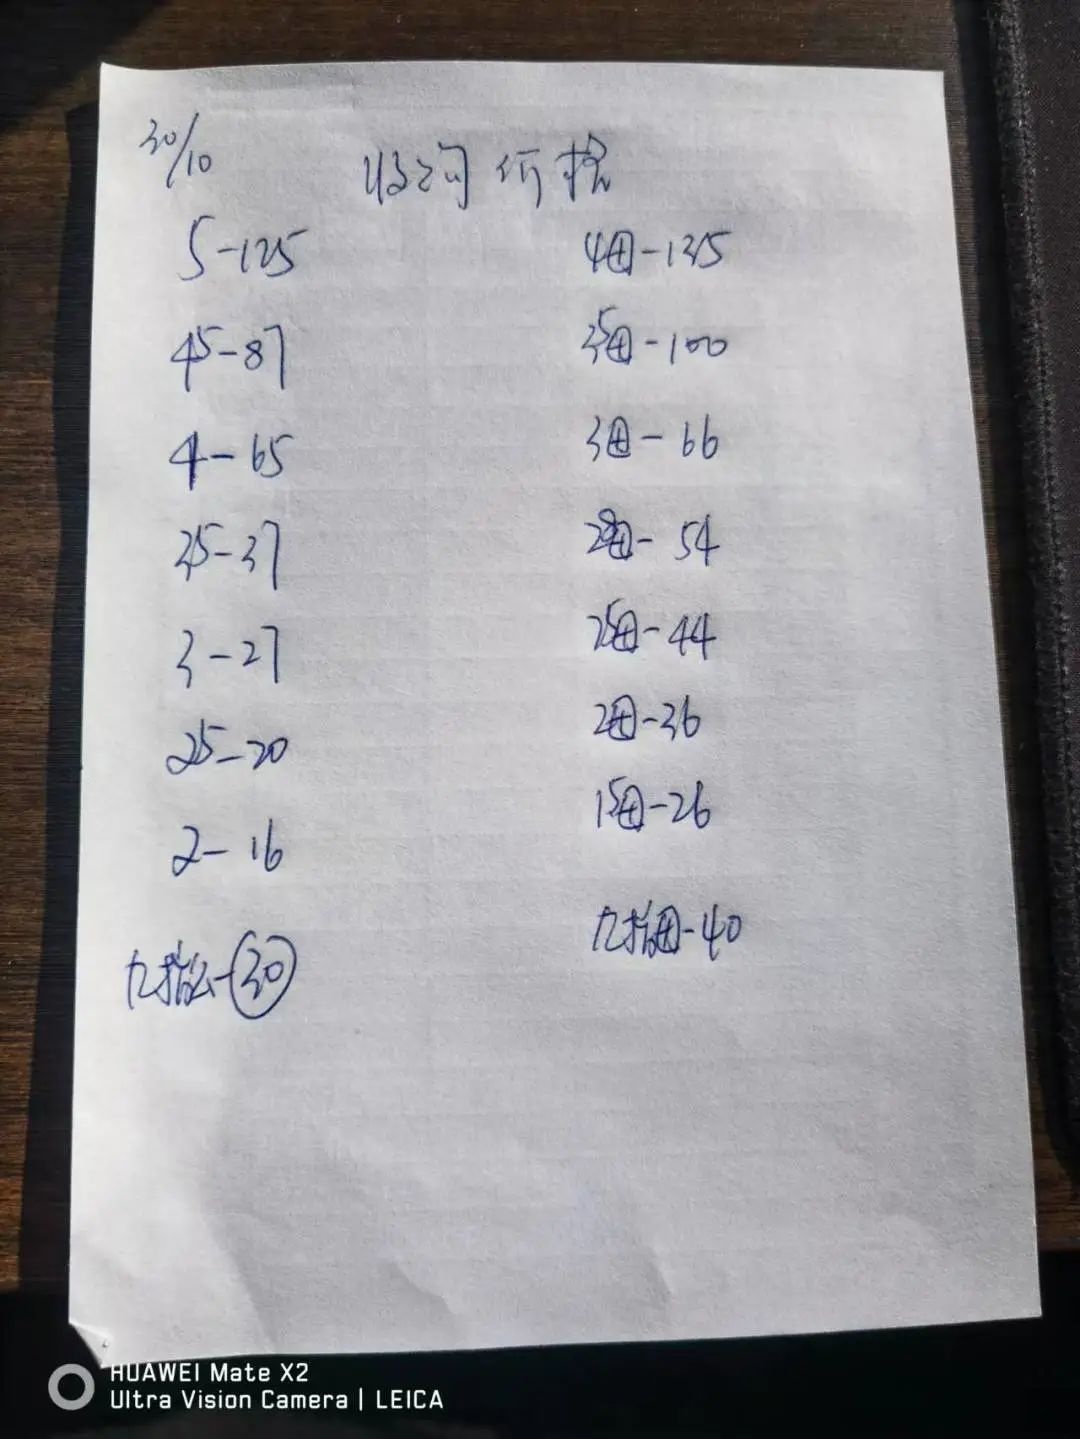 30/10
价格
5-125
45-87
4-65
35-37
3-27
25-20
2-16
九指公-30
4母-135
35母-100
3母-66
28母-54
25母-44
2母-36
15母-26
九指母-40
HUAWEI Mate X2
Ultra Vision Camera | LEICA